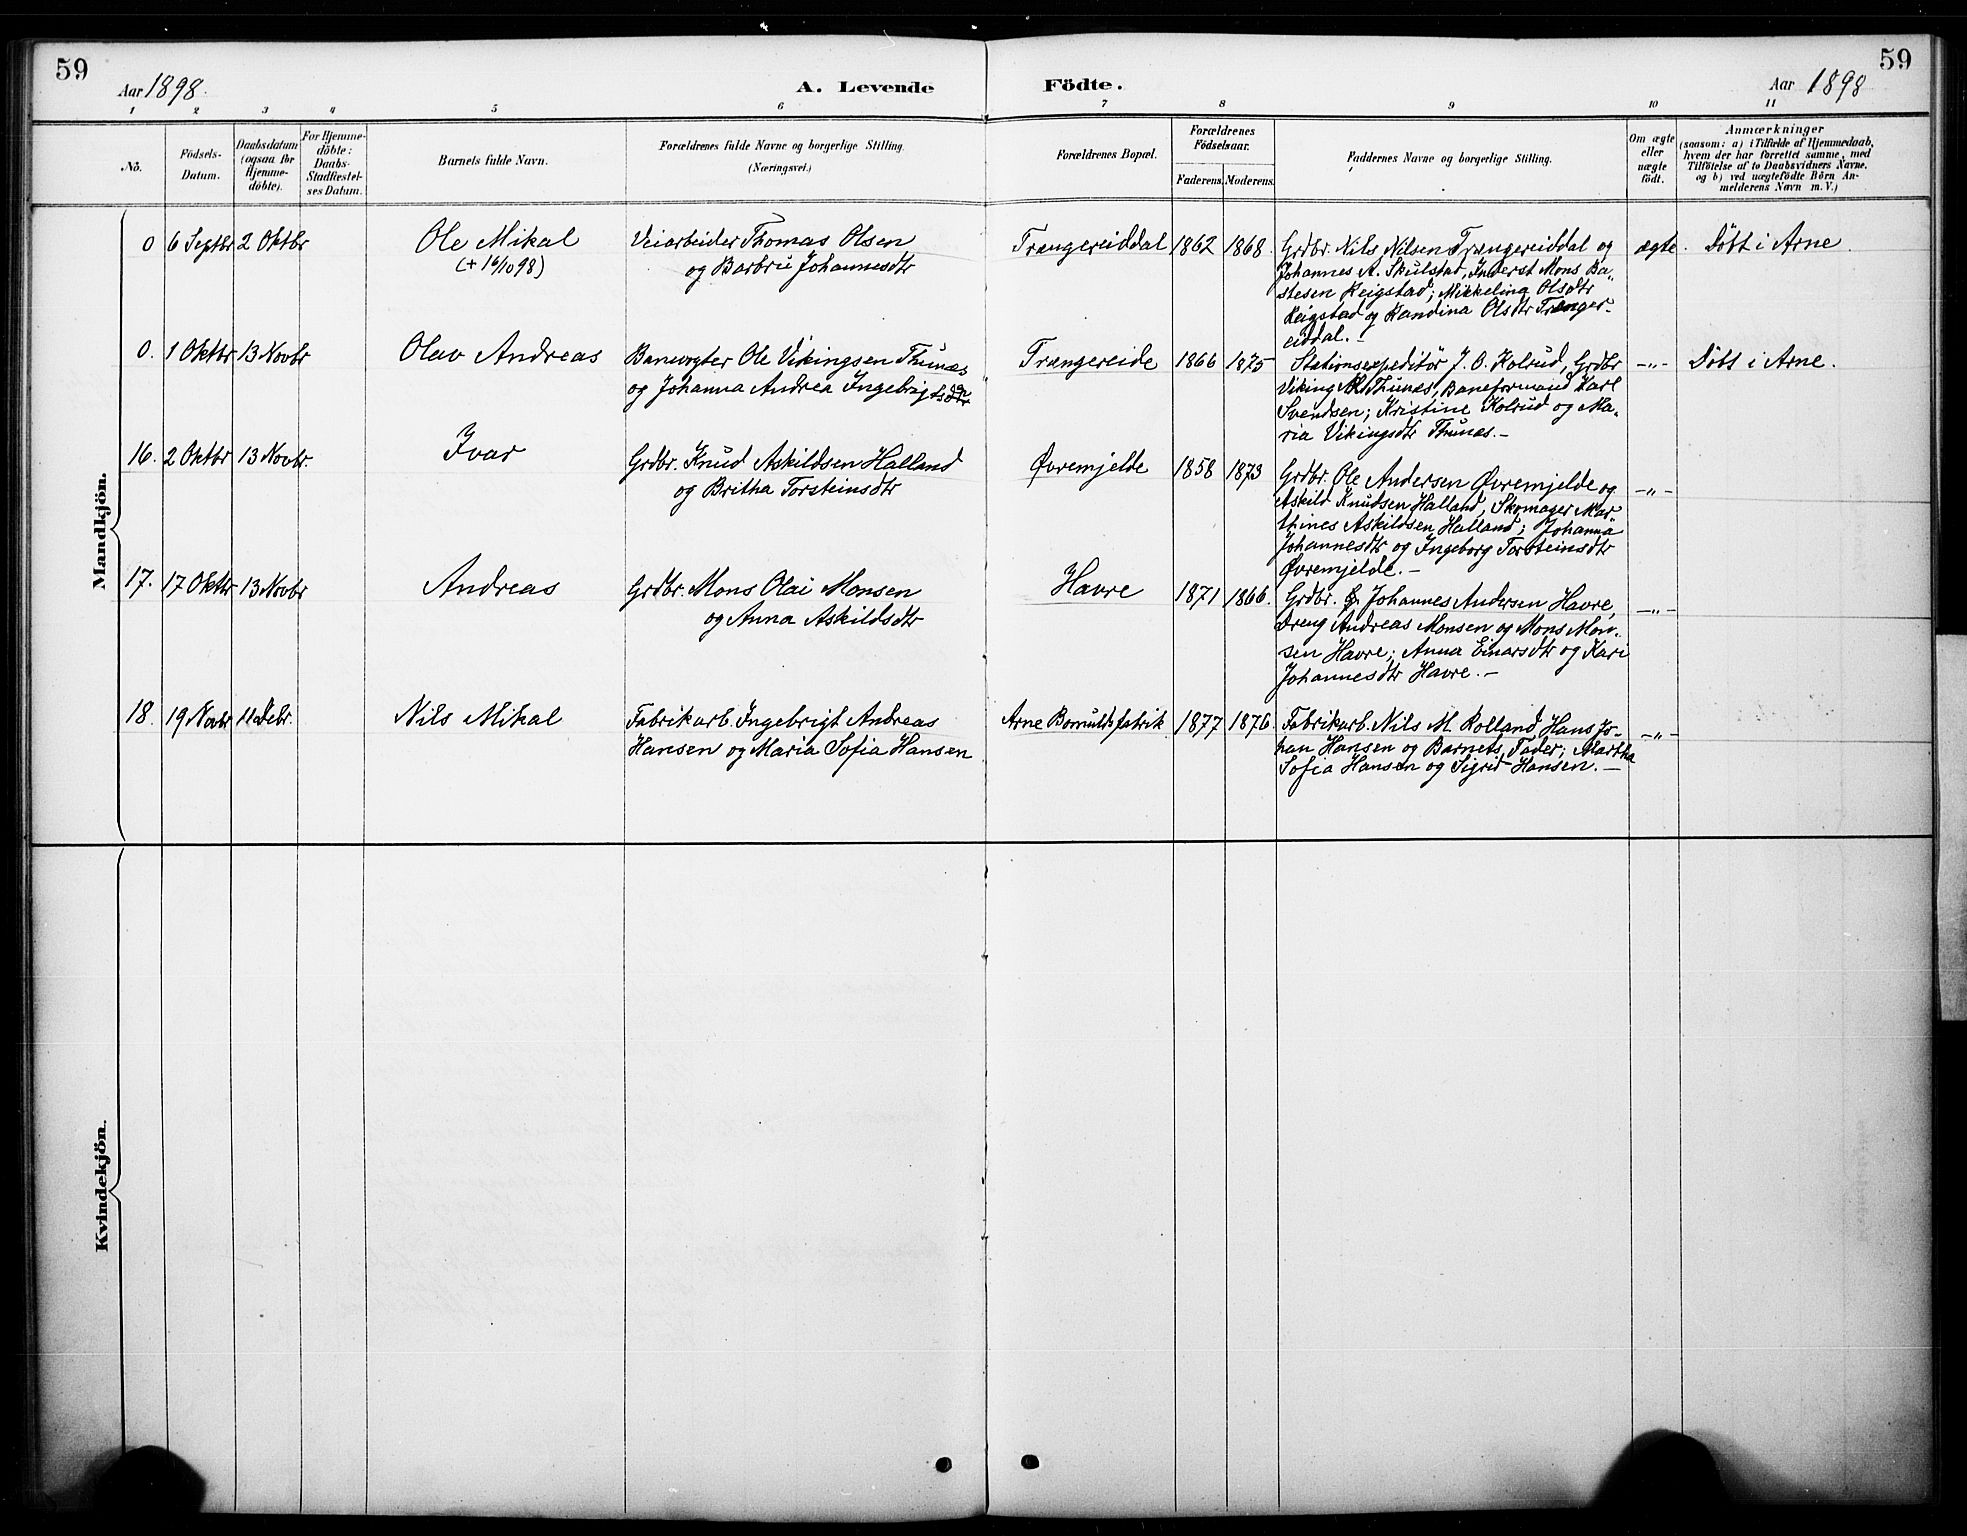 59
Aar 1898.
A. Levende Födte.
Aar 1898
59
1 2 3 4 5 6 7 8 9 10 11
No.
Födsels-
Datum.
Daabsdatum
(ogsaa for
Hjemme-
döbte).
For Hjemme-
döbte:
Daabs-
Stadfæstel-
ses Datum.
Barnets fulde Navn.
Forældrenes fulde Navne og borgerlige Stilling.
(Næringsvei.)
Forældrenes Bopæl.
Forældrenes
Födselsaar.
Faderens. Moderens.
Faddernes Navne og borgerlige Stilling.
Om ægte
eller
uægte
födt.
Anmærkninger
(saasom: a) i Tilfælde af Hjemmedaab,
hvem der har forrettet samme, med
Tilföielse af to Daabsvidners Navne.
og b) ved uægtefödte Börn An-
melderens Navn m. V.)
Mandkjön.
0 6 Septbr 2 Oktbr
Ole Mikal
(+ 16/10 98)
Veiarbeider Thomas Olsen
og Barbru Johannesdtr
Trængereiddal 1862 1868.
Grdbr. Nils Nilsen Trængereiddal og
Johannes A. Skulstad, Inderst Mons Ba-
stesen Reigstad; Mikkeline Olsdtr
Reigstad og Randina Olsdtr Trænger-
eiddal.-
ægte. Döbt i Arne.
0. 1 Oktbr 13 Novbr
Olav Andreas
Banevogter Ole Vikingsen Thunes
og Johanna Andrea Ingebrigtsdtr
Trængereide 1866 1875
Stationsexpeditör J. O. Kolrud, Grdbr
Viking Thunes, Baneformand Karl
Svendsen; Kristine Kolrud og Ma-
ria Vikingsdtr Thunes.-
-"- Döbt i Arne.
16. 2 Oktbr 13 Novbr.
Ivar
Grdbr. Knud Askildsen Halland
og Britha Torsteinsdtr
Øvremjelde 1858 1873
Grdbr. Ole Andersen Øvremjelde og
Askild Knudsen Halland, Skomager Mar-
thines Askildsen Halland; Johanna
Johannesdtr og Ingeborg Torsteinsdtr
Øvremjelde.-
-"-
17. 17 Oktbr 13 Novbr
Andreas
Grdbr. Mons Olai Monsen
og Anna Askildsdtr
Havre 1871 1866.
Grdbr. Johannes Andersen Havre,
Dreng Andreas Monsen og Mons Mon-
sen Havre; Anna Einarsdtr og Kari
Johannesdtr Havre.-
-"-
18. 19 Novbr 11 Debr.
Nils Mikal
Fabrikarb. Ingebrigt Andreas
Hansen og Maria Sofia Hansen
Arne Bomuldsfabrik 1877 1876
Fabrikarb. Nils M. Rolland, Hans Jo-
han Hansen og Barnets Fader; Martha
Sofia Hansen og Sigrid Hansen.-
-"-
Kvindekjön.